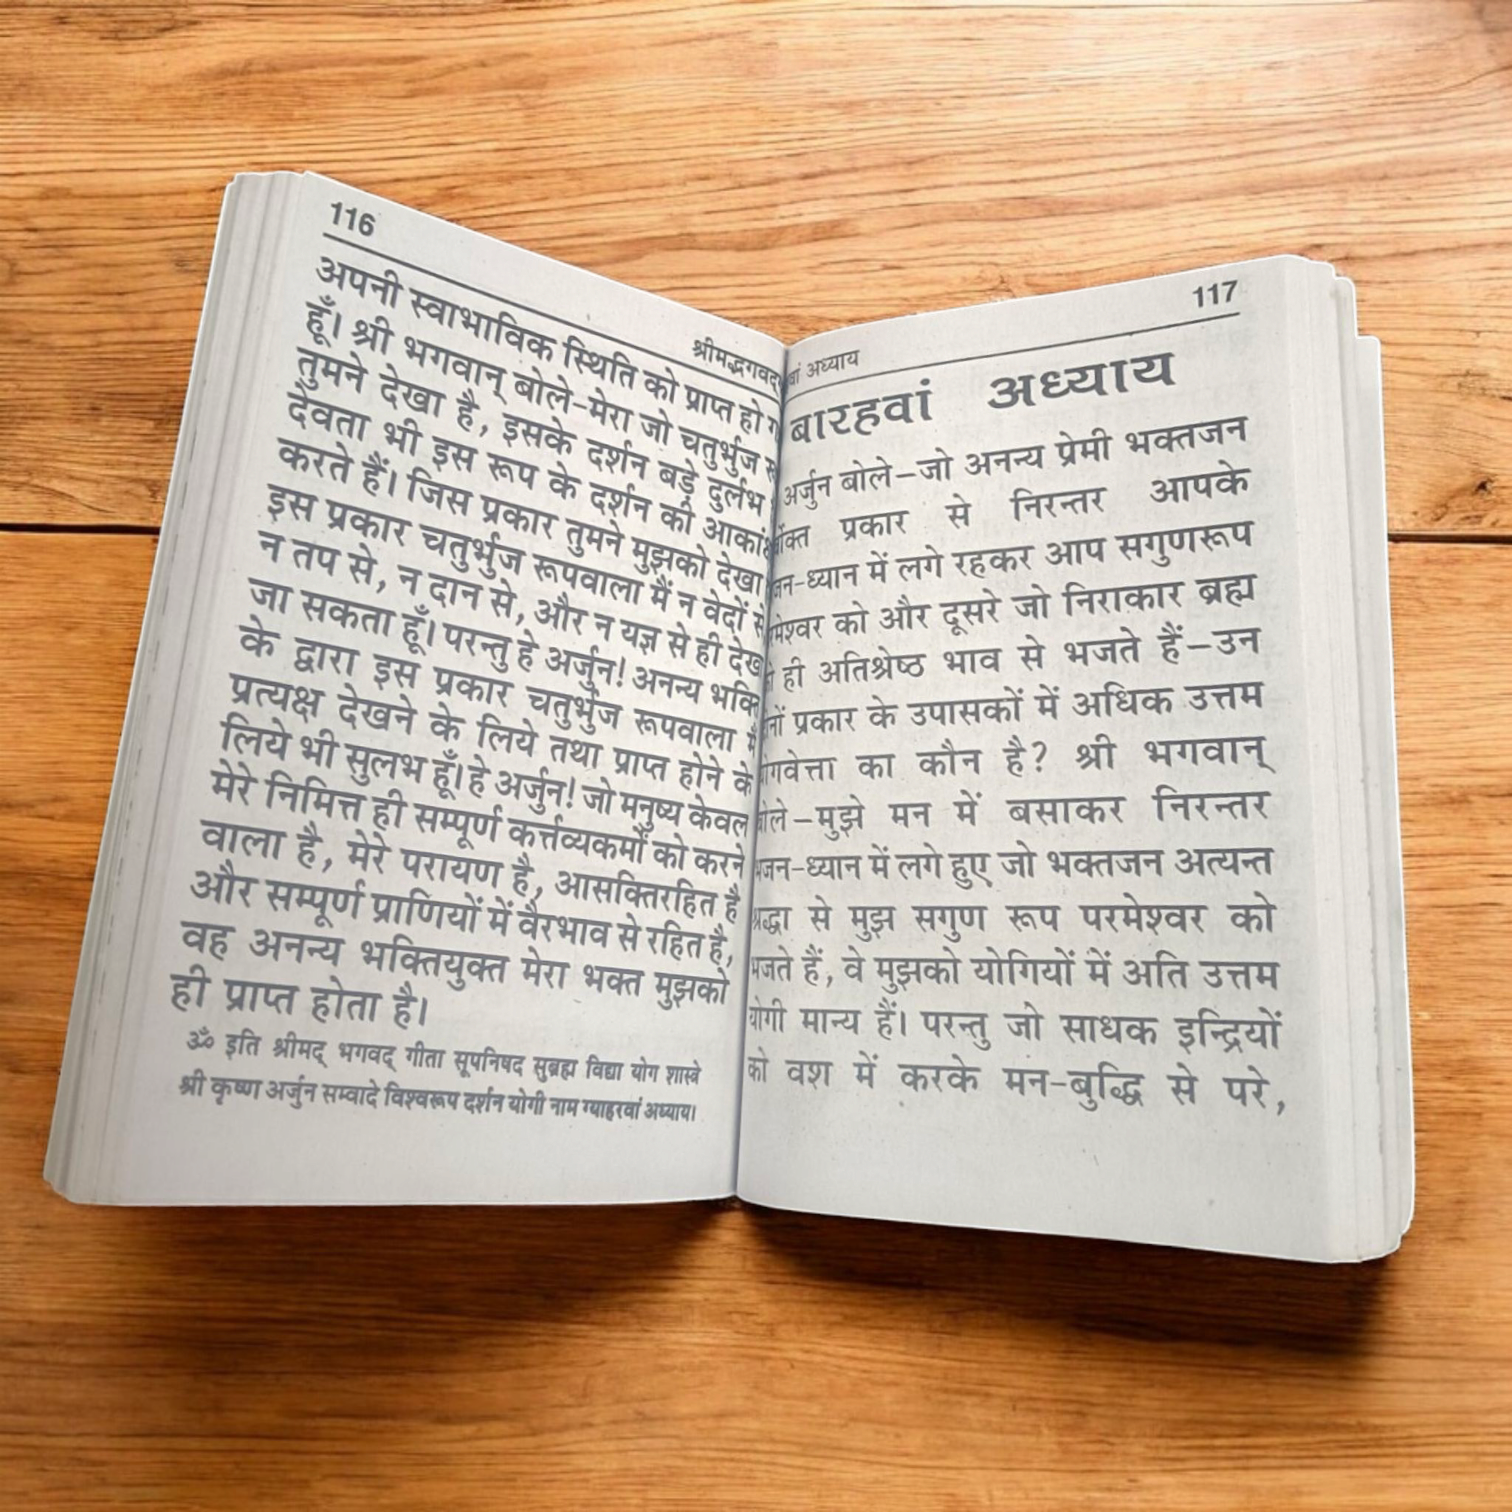 116
श्रीमद्भगवद्
अपनी स्वाभाविक स्थिति को प्राप्त हो
हूँ। श्री भगवान् बोले-मेरा जो चतुर्भुज
तुमने देखा है, इसके दर्शन बड़े दुर्लभ
देवता भी इस रूप के दर्शन की
करते हैं। जिस प्रकार तुमने मुझको देखा
इस प्रकार चतुर्भुज रूपवाला मैं न वेदों से
न तप से, न दान से, और न यज्ञ से ही देख
जा सकता हूँ। परन्तु हे अर्जुन! अनन्य भक्ति
के द्वारा इस प्रकार चतुर्भुज रूपवाला मैं
प्रत्यक्ष देखने के लिये तथा प्राप्त होने के
लिये भी सुलभ हूँ। हे अर्जुन! जो मनुष्य केवल
मेरे निमित्त ही सम्पूर्ण कर्त्तव्यकर्मों को करने
वाला है, मेरे परायण है, आसक्तिरहित है
और सम्पूर्ण प्राणियों में वैरभाव से रहित है,
वह अनन्य भक्तियुक्त मेरा भक्त मुझको
ही प्राप्त होता है।
ॐ इति श्रीमद् भगवद् गीता सूपनिषद सुब्रह्म विद्या योग शास्त्रे
श्री कृष्ण अर्जुन सम्वादे विश्वरूप दर्शन योगी नाम ग्याहरवां अध्याय।
117
अध्याय
बारहवां अध्याय
अर्जुन बोले-जो अनन्य प्रेमी भक्तजन
प्रकार से निरन्तर आपके
ध्यान में लगे रहकर आप सगुणरूप
को और दूसरे जो निराकार ब्रह्म
ही अतिश्रेष्ठ भाव से भजते हैं-उन
प्रकार के उपासकों में अधिक उत्तम
का कौन है? श्री भगवान्
बोले-मुझे मन में बसाकर निरन्तर
भजन-ध्यान में लगे हुए जो भक्तजन अत्यन्त
श्रद्धा से मुझ सगुण रूप परमेश्वर को
भजते हैं, वे मुझको योगियों में अति उत्तम
योगी मान्य हैं। परन्तु जो साधक इन्द्रियों
को वश में करके मन-बुद्धि से परे,